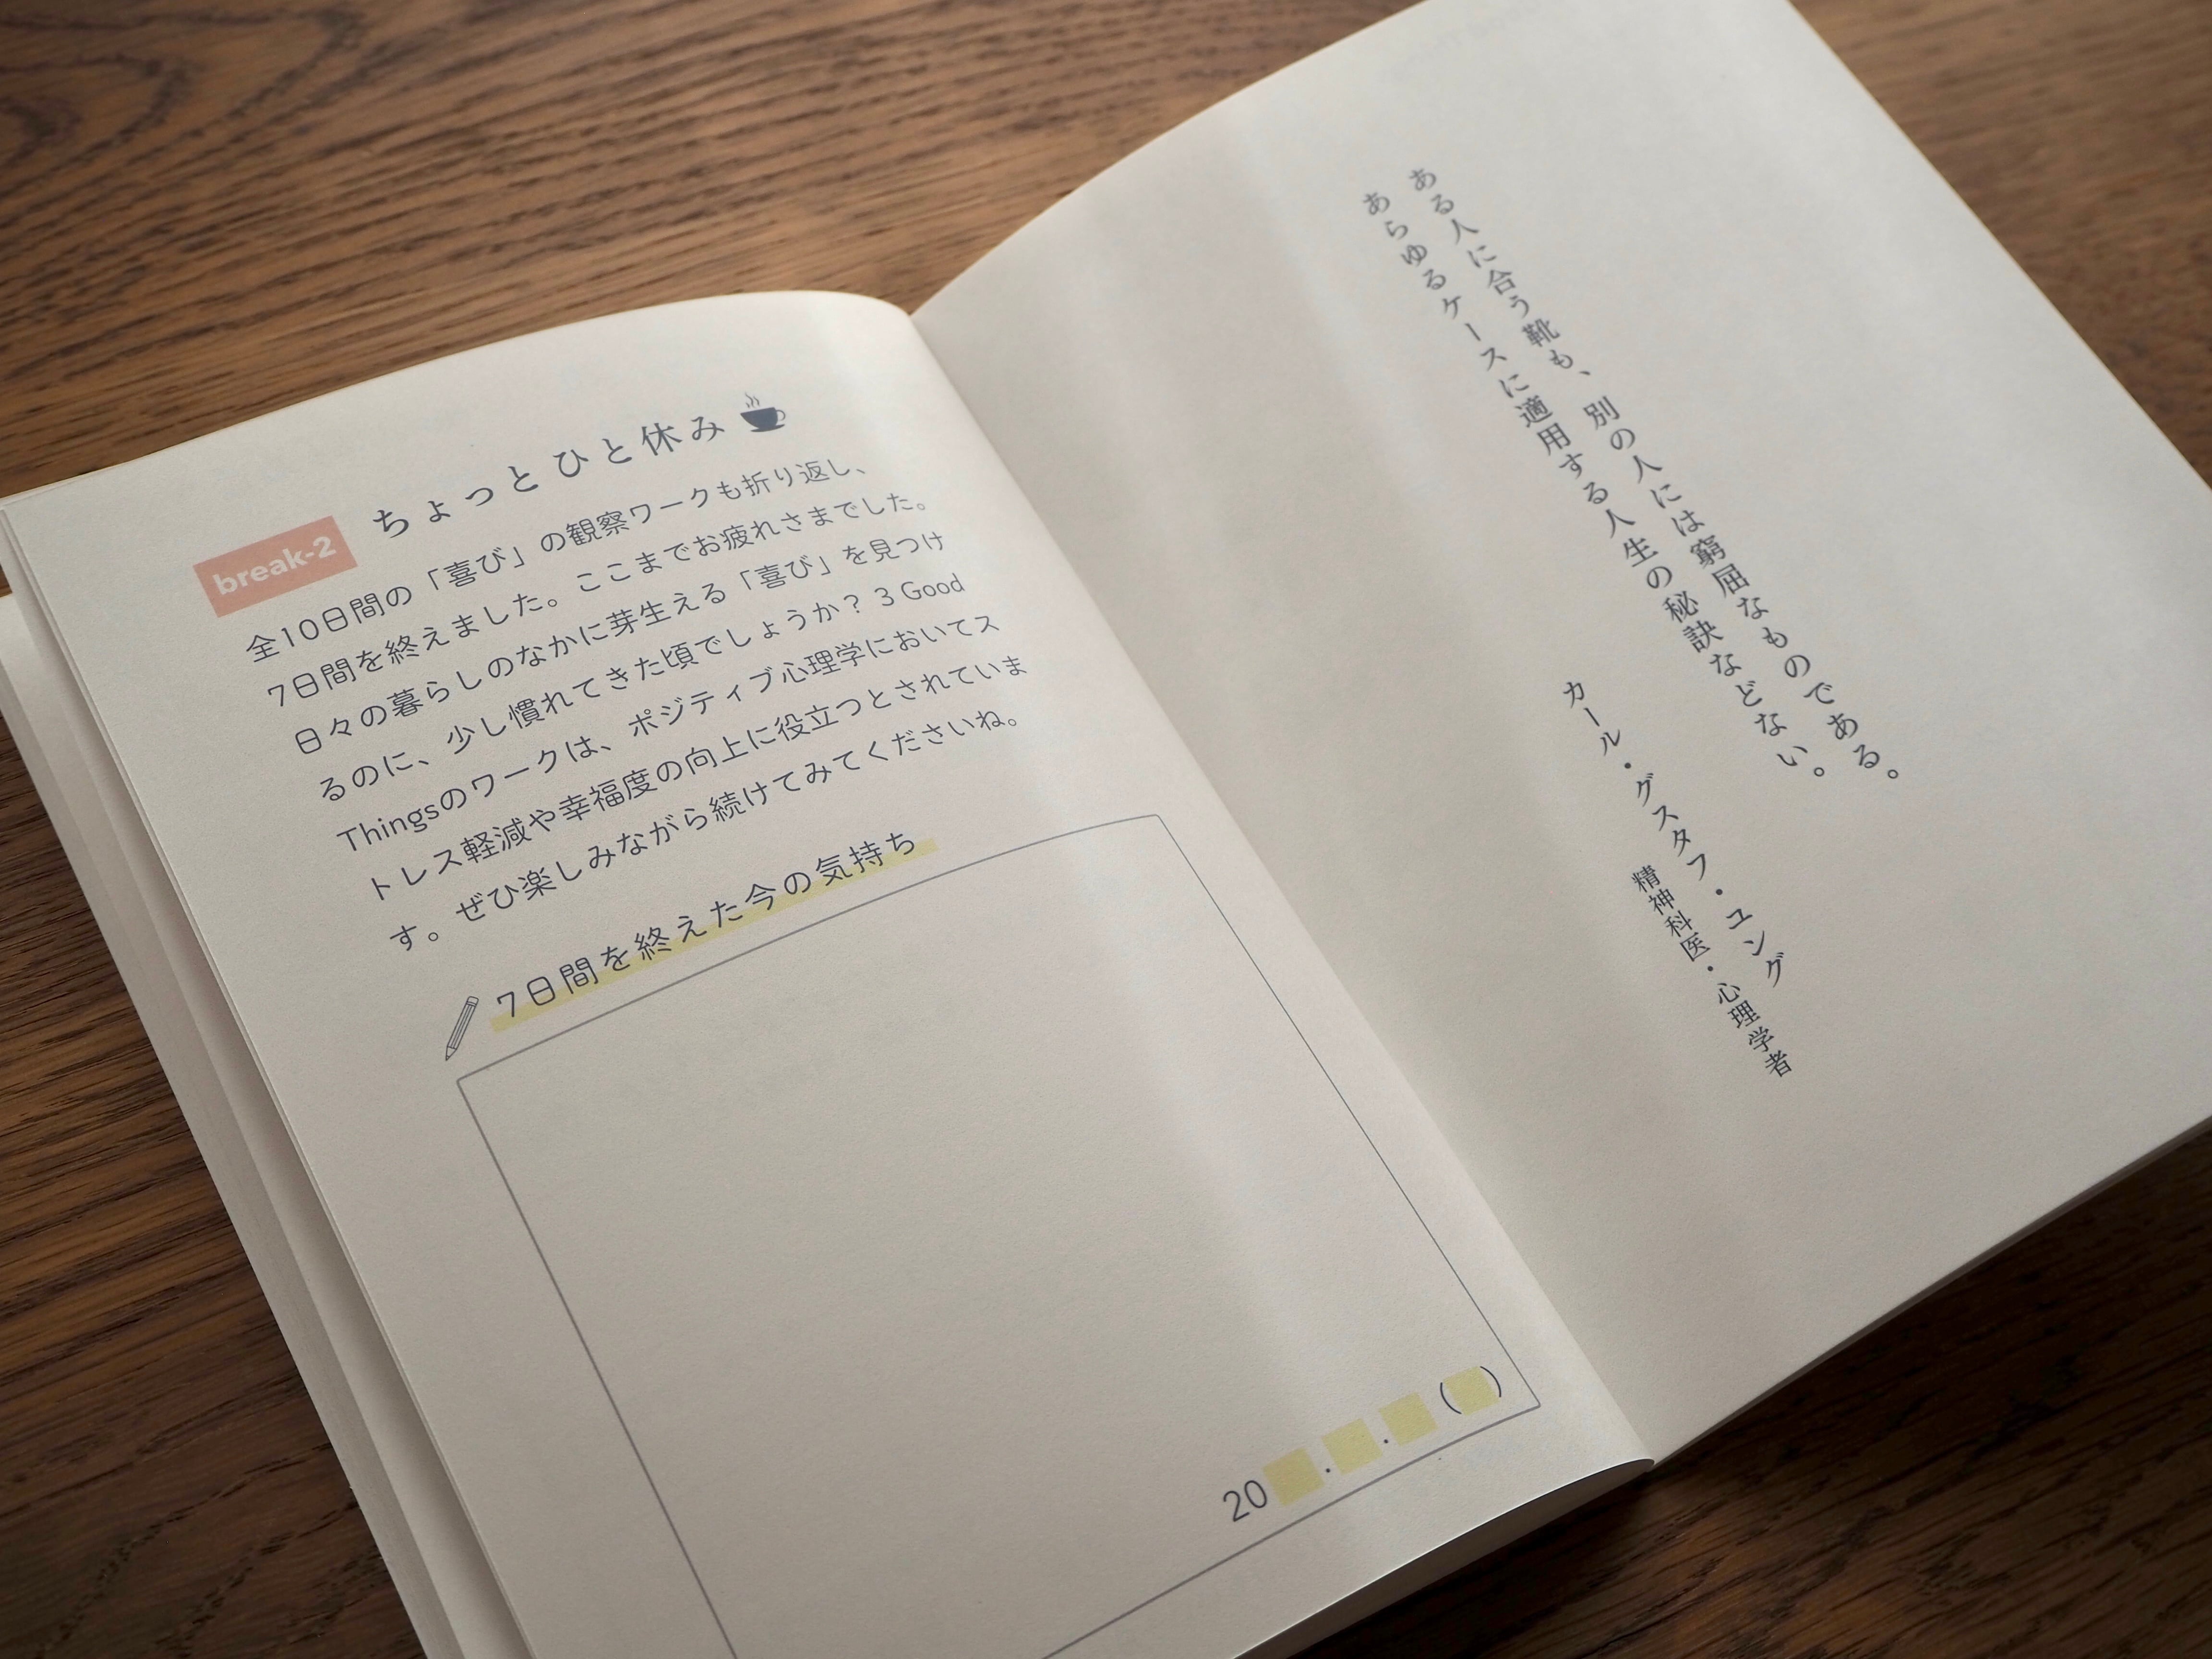 break-2 ちょっとひと休み
全10日間の「喜び」の観察ワークも折り返し、
7日間を終えました。ここまでお疲れさまでした。
日々の暮らしのなかに芽生える「喜び」を見つけ
るのに、少し慣れてきた頃でしょうか？ 3 Good
Thingsのワークは、ポジティブ心理学においてス
トレス軽減や幸福度の向上に役立つとされていま
す。ぜひ楽しみながら続けてみてくださいね。
7日間を終えた今の気持ち
20 . . ( )
ある人に合う靴も、別の人には窮屈なものである。
あらゆるケースに適用する人生の秘訣などない。
カール・グスタフ・ユング
精神科医・心理学者